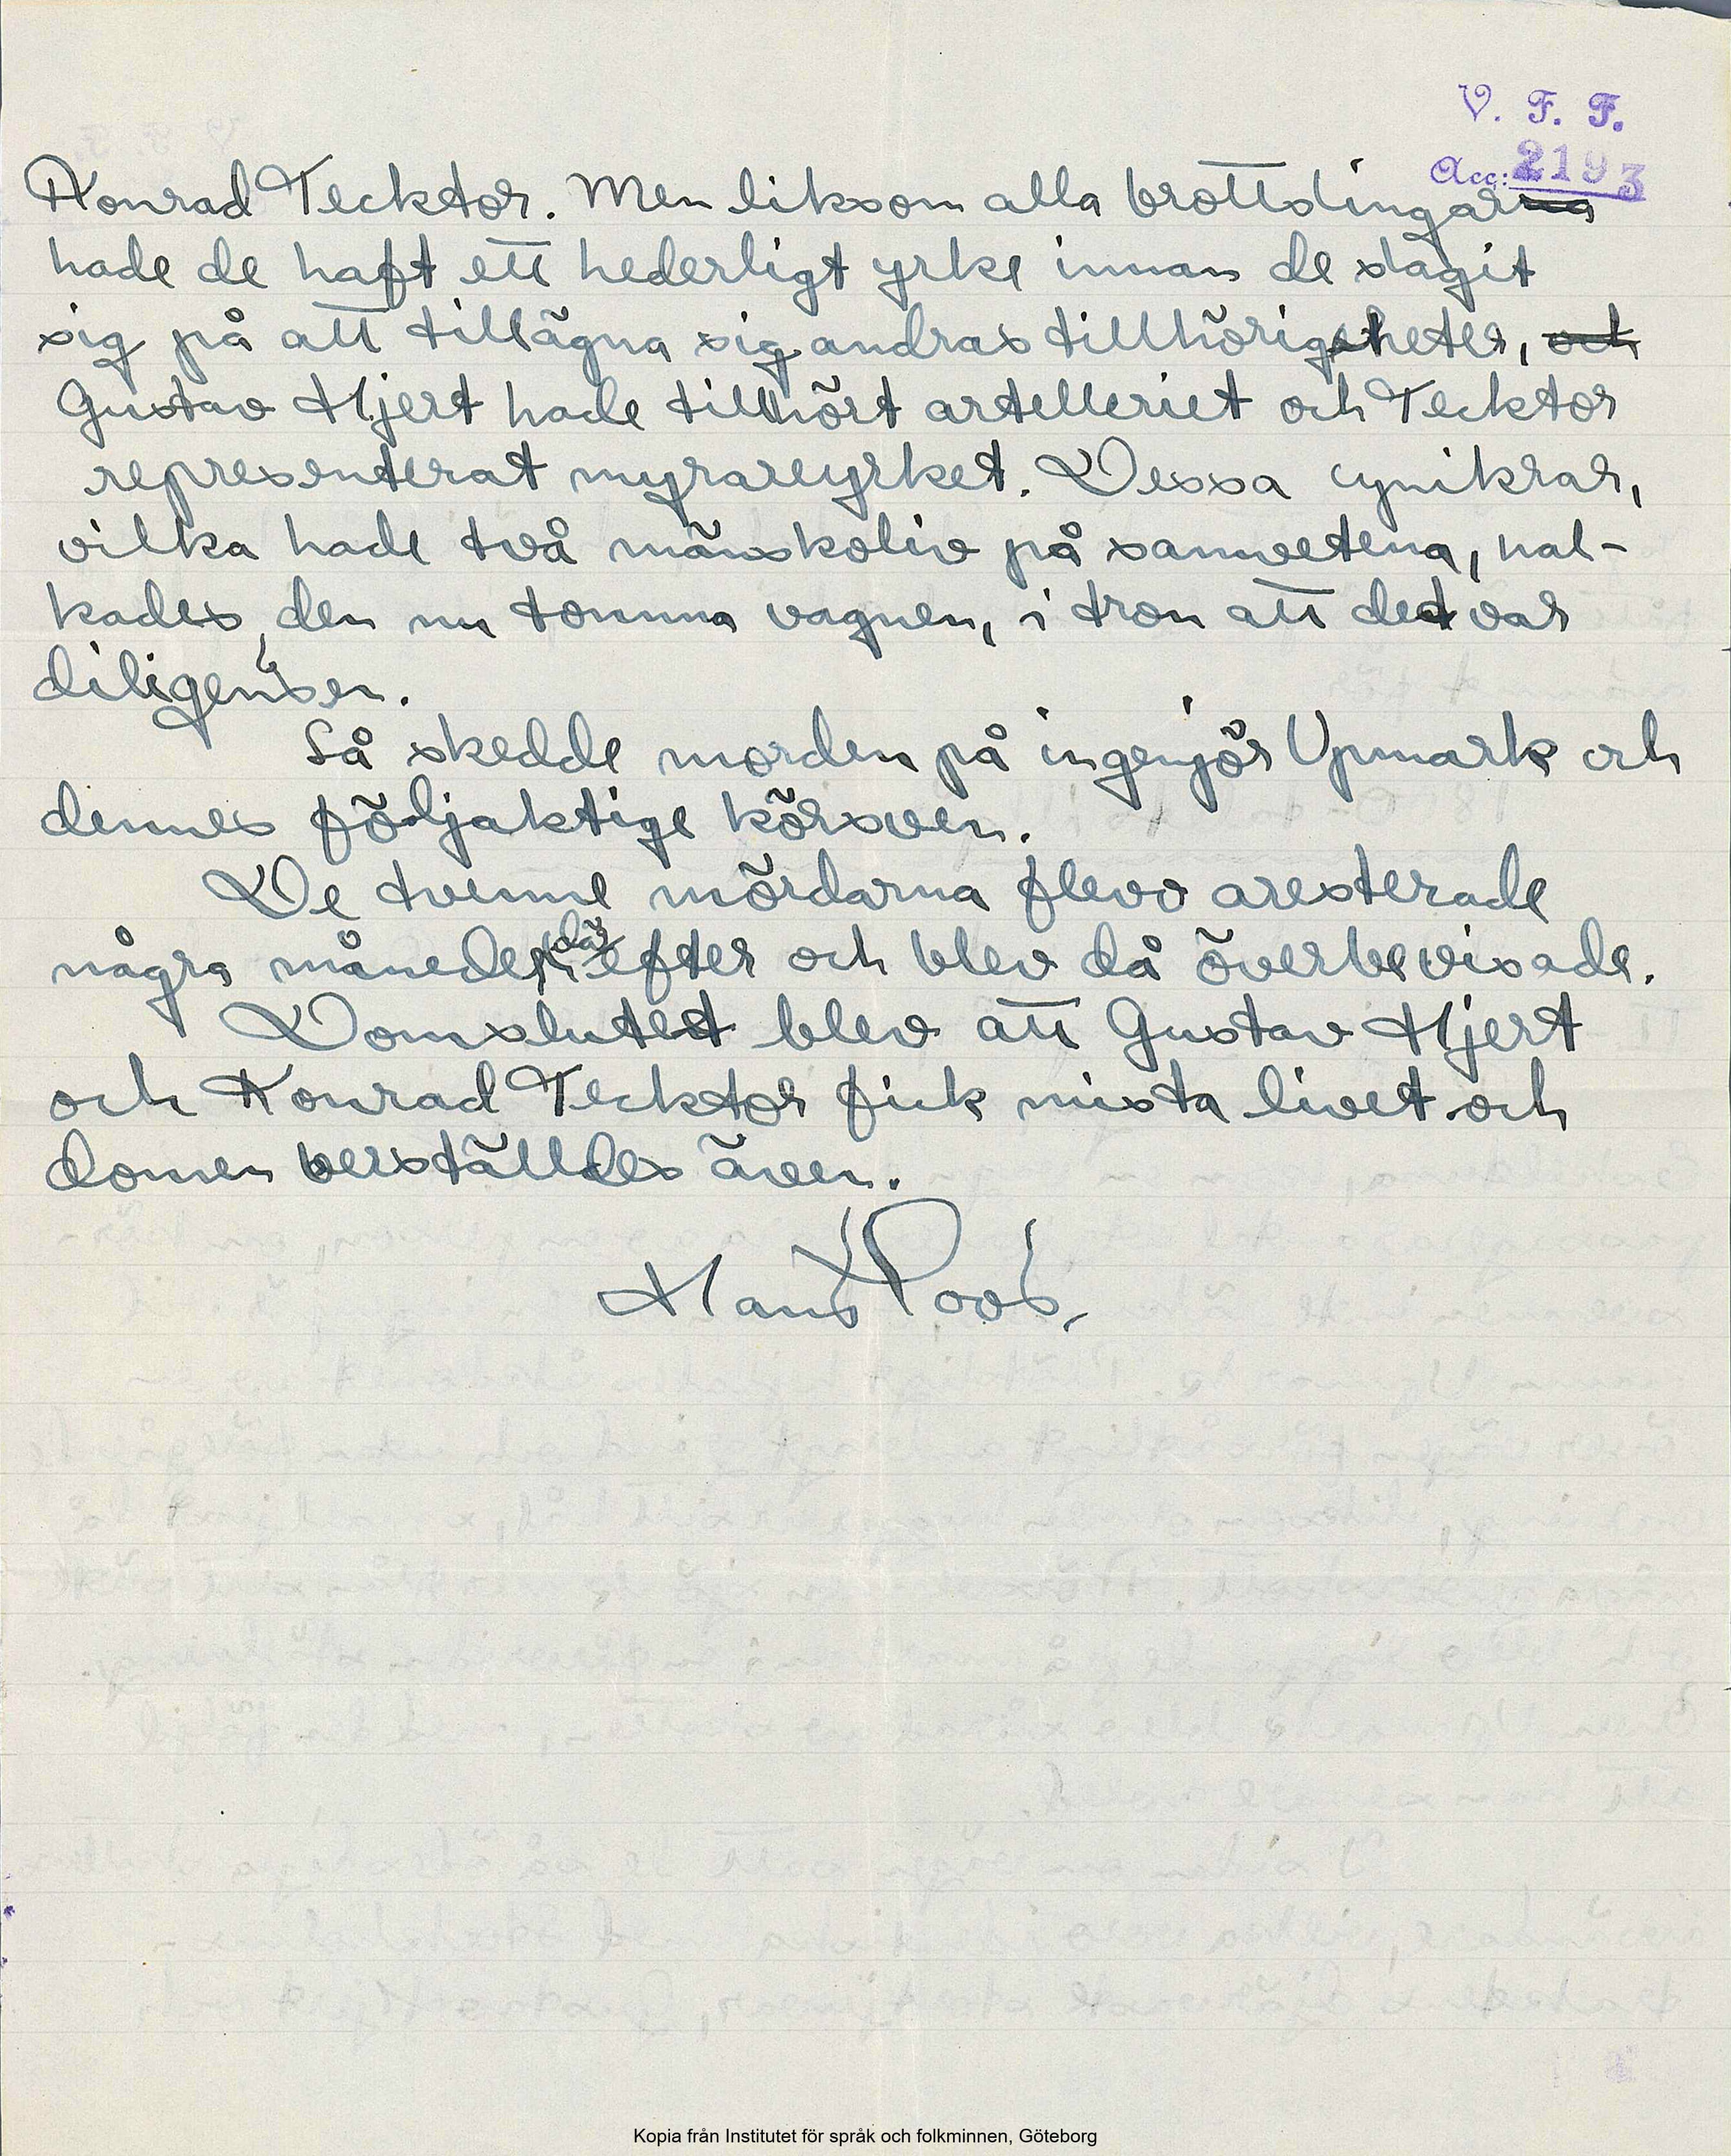 V. F. F.
Acc: 2193
Konrad Tecktor. Men liksom alla brottslingarna
hade de haft ett hederligt yrke innan de slagit
sig på att tillägna sig andras tillhörigheter, och
Gustav Hjert hade tillhört artelleriet och Tecktor
representerat myrareyrket. Dessa cynikrar,
vilka hade två mänskoliv på samvetena, nal-
kades den nu tomma vagnen, i tron att det var
diligensen.
Så skedde morden på ingenjör Upmark och
dennes följaktige körsven.
De tvenne mördarna blevo aresterade
några måneder därefter och blev då överbevisade.
Domslutet blev att Gustav Hjert
och Konrad Tecktor fick mista livet och
domen verställdes även.
Hans Poos.
Kopia från Institutet för språk och folkminnen, Göteborg